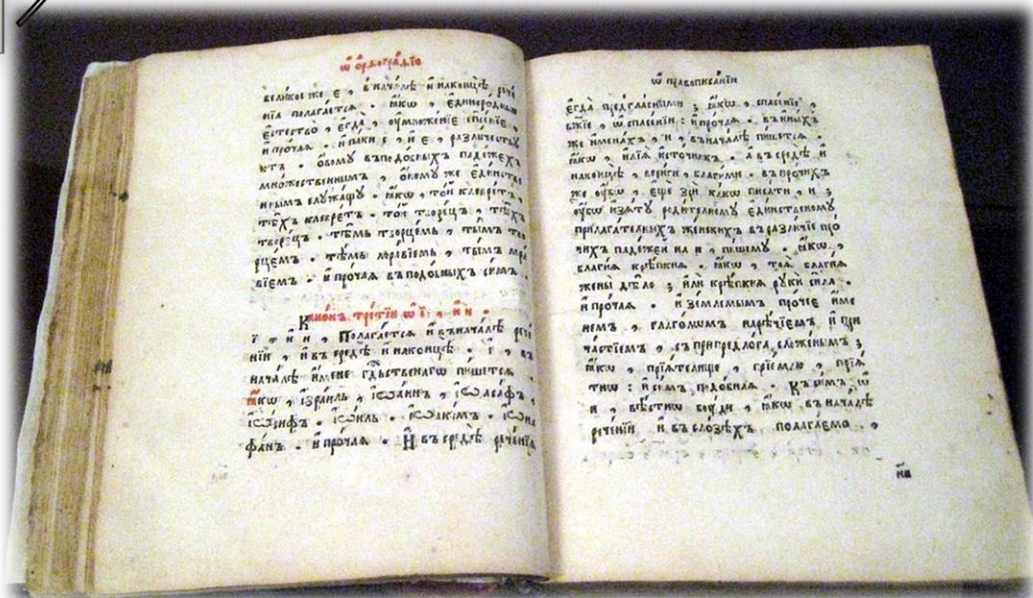 ѿ орѳографіи
великое же є , в началѣ и наконцѣ рече
нїа полагаетсѧ . ꙗкѡ , єдинородныи
єстество , єгда , оумноженїе спсенїе ,
и прочаѧ . и паки е , и є , различеству
ютъ . овому въ подобныхъ падежехъ
множественнымъ , оному же єдинстве
ннымъ служащу . ꙗкѡ , той клевретъ ,
тѣхъ клеврет . той творецъ , тѣхъ
творецъ . тѣмъ творцемъ , тымъ тво
рцем . тѣмъ
вїемъ . и прочаѧ въ подобныхъ симъ .
Канонъ третїи ѡ ї , и и .
ї , и и , Полагаетсѧ и въ началѣ рече
нїи , и въ средѣ и наконцѣ . ї , въ
началѣ имене гдьственнагѡ пишетсѧ .
ꙗкѡ , ізраиль , іѡаннъ , іѡасафъ ,
іѡсифъ . іѡиль . іѡакимъ . іѡна
фанъ . и прочаѧ . И въ средѣ реченїѧ
ѿ правописанїи
єгда предгласными ; ꙗкѡ , спасенїе ,
бжїе , ѡ спасенїи : и прочаѧ . въ иныхъ
же именахъ , и , в началѣ пишетсѧ .
ꙗкѡ , илїѧ источникъ . а въ средѣ и
наконцѣ , вериги , благими . въ прочихъ
же оубѡ , еще зри какѡ писати , и ;
оубѡ изѧту родителному єдинственому
прилагателныхъ женскихъ въ различїе про
чихъ падежей на и , пишему . ꙗкѡ ,
благиѧ крѣпкиѧ . ꙗкѡ , тоѧ благиѧ
жены дѣло ; или крѣпкиѧ руки сила .
и прочаѧ . и землемымъ прочее име
нем , глаголѡмъ нарѣчїемъ и при
частїемъ , съ при предлога сложенымъ ;
ꙗкѡ , прїѧтелище , прїемлю , прїѧ
тнѡ : и симъ подобнаѧ . Къ симъ ѡ
и , вѣстнѡ боуди , ꙗкѡ в началѣ
реченїи и въ слозѣхъ полагаемо ,